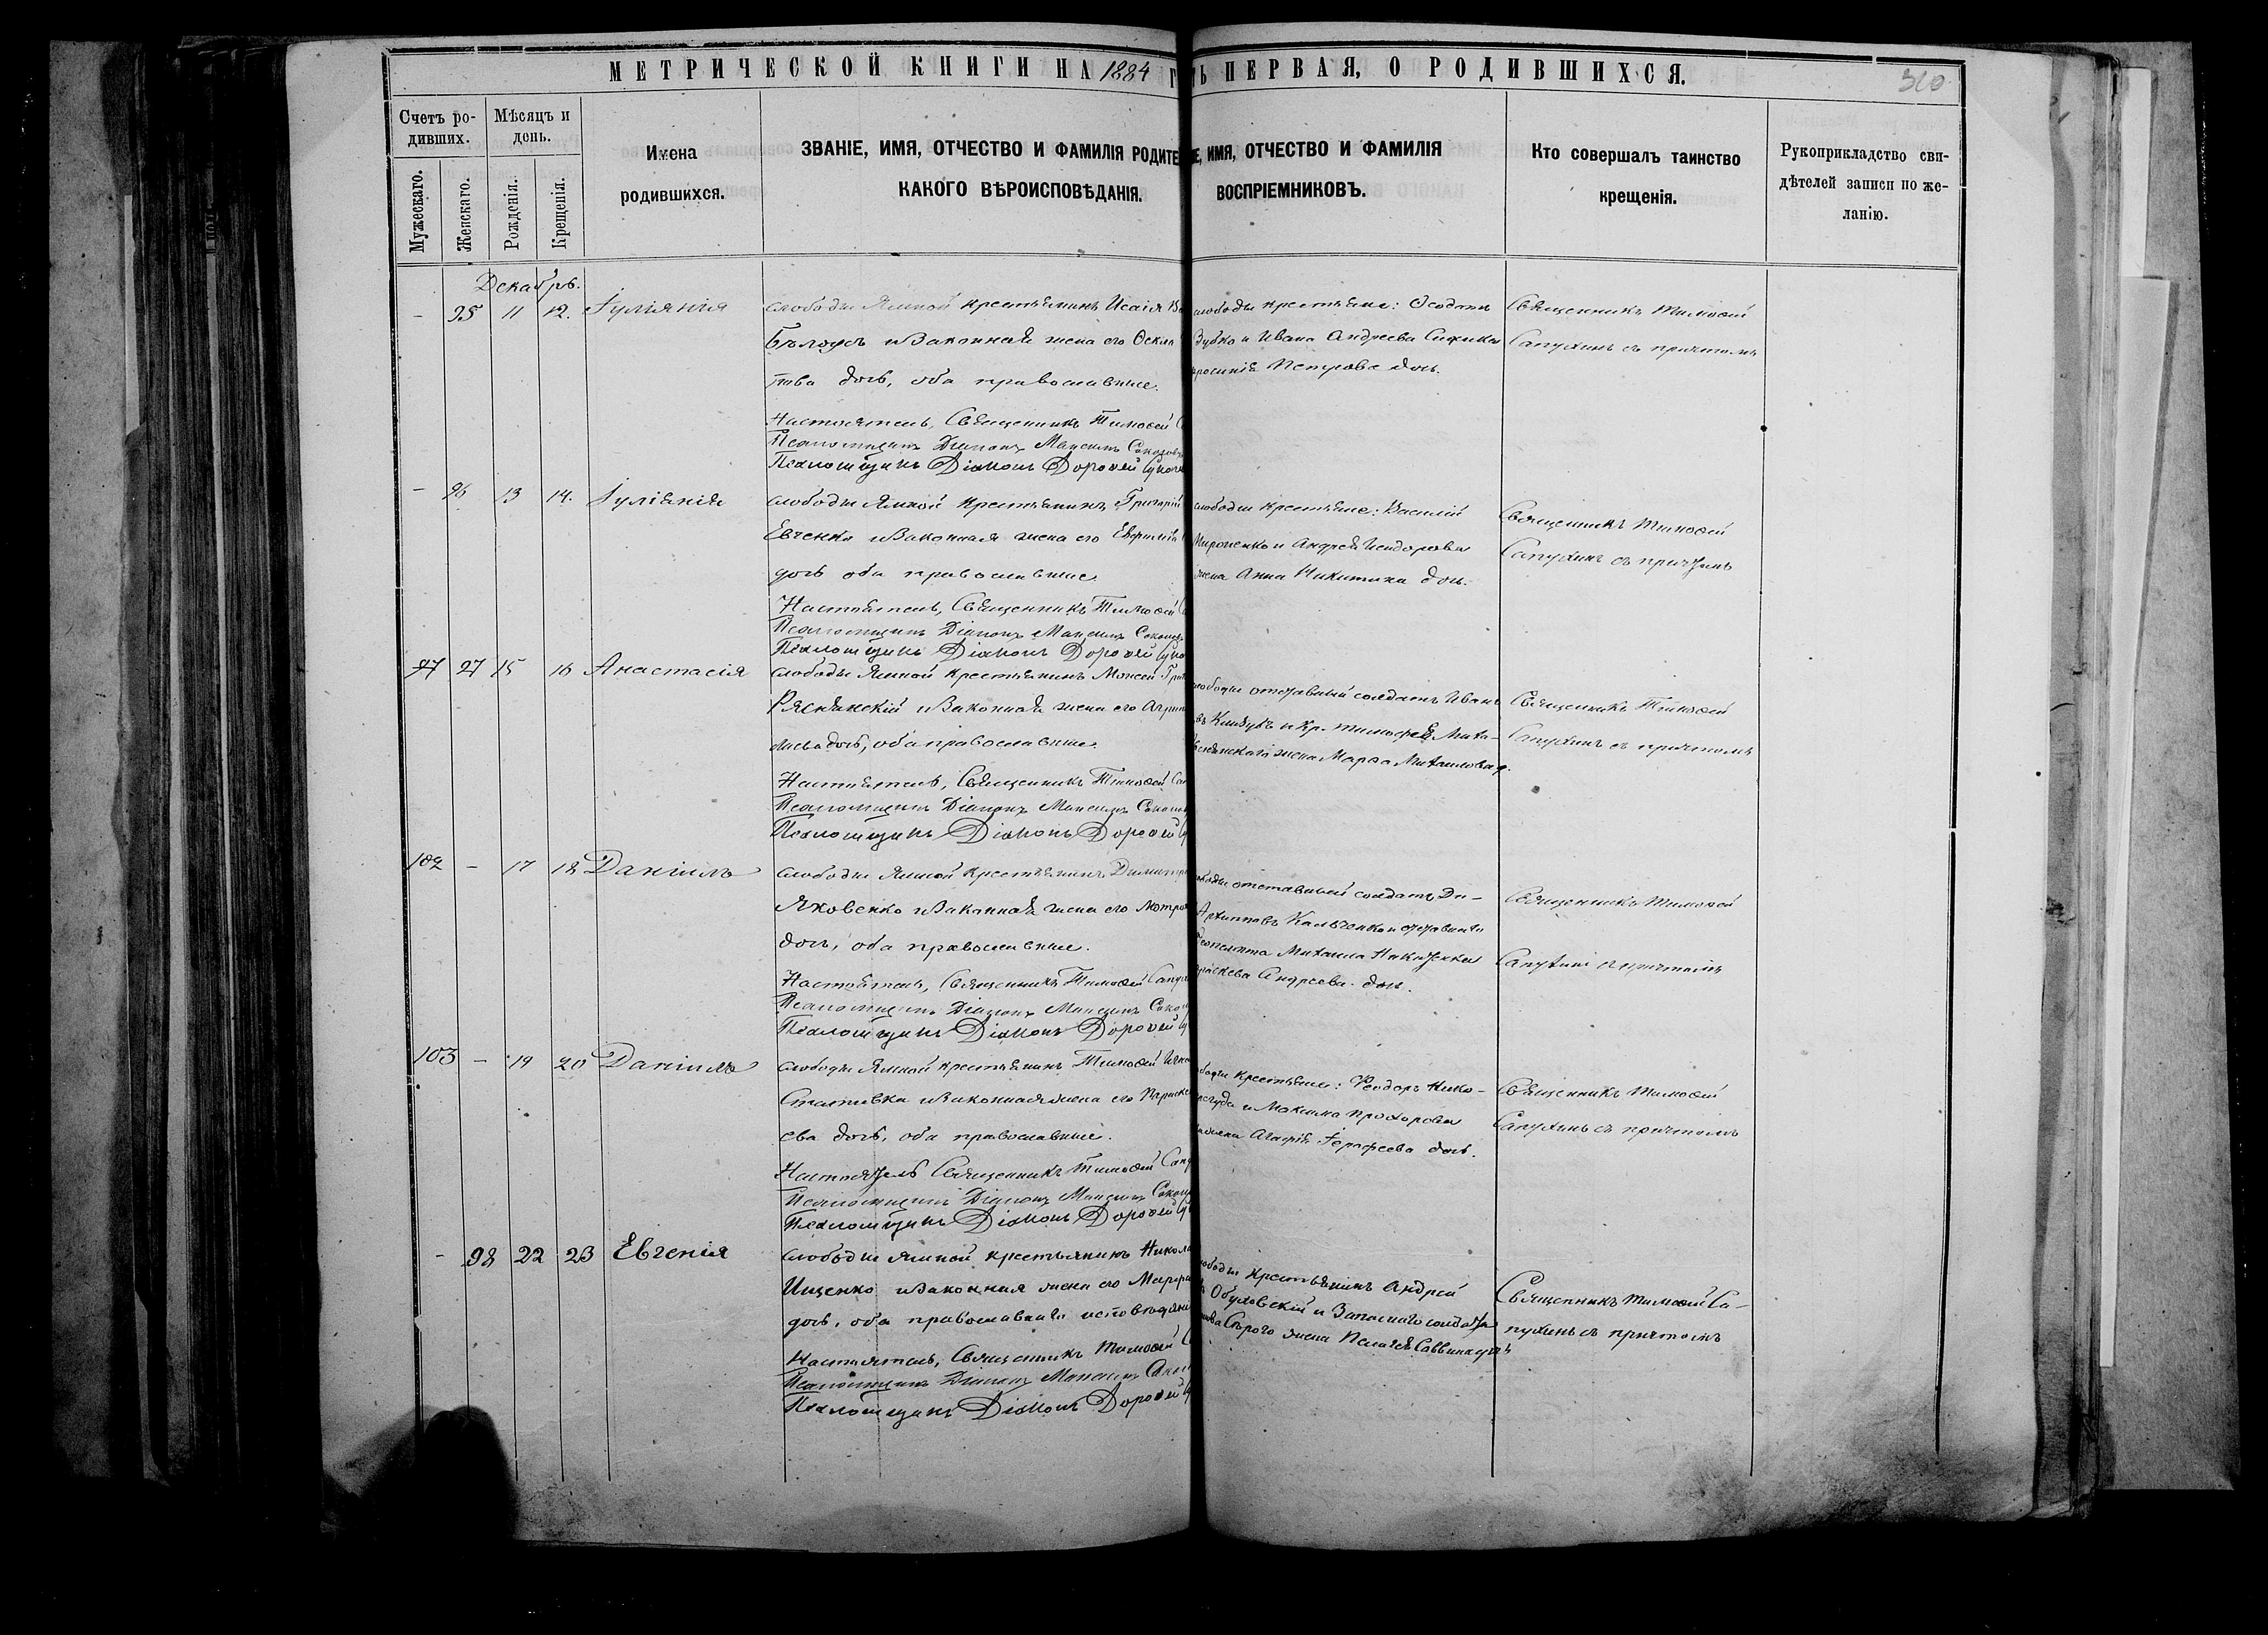 МЕТРИЧЕСКОЙ КНИГИ НА 1884 Г
Ь ПЕРВАЯ, О РОДИВШИХСЯ.
310
Счетъ ро-
дившихъ.
Мѣсяцъ и
день.
Мужескаго.
Женскаго.
Рожденія.
Крещенія.
Имена
родившихся.
ЗВАНІЕ, ИМЯ, ОТЧЕСТВО И ФАМИЛІЯ РОДИТЕ
КАКОГО ВѢРОИСПОВѢДАНІЯ.
Е, ИМЯ, ОТЧЕСТВО И ФАМИЛІЯ
ВОСПРІЕМНИКОВЪ.
Кто совершалъ таинство
крещенія.
Рукоприкладство сви-
дѣтелей записи по же-
ланію.
Декабрь.
- 95 11 12. Іуліянія
слободы Ямной крестьянинъ Исаія
Бѣлоусъ и законная жена его
дочь, оба православные.
Настоятель, Священникъ Тимоѳей
Псаломщикъ Діаконъ Максимъ
Псаломщикъ Діаконъ Дороѳей
слободы крестьяне:
Зубко и Ивана Андреева
Петрова дочь.
Священникъ Тимоѳей
Сапухинъ съ причтомъ
- 96 13 14. Іуліянія
слободы Ямной крестьянинъ Григорій
Евченко и законная жена его
дочь оба православные.
Настоятель, Священникъ Тимоѳей
Псаломщикъ Діаконъ Максимъ
Псаломщикъ Діаконъ Дороѳей
слободы крестьяне: Василій
Мироненко и Андрея Исидорова
жена Анна Никитина дочь.
Священникъ Тимоѳей
Сапухинъ съ причтомъ
97 97 15 16 Анастасія
слободы Ямной крестьянинъ Моисей
Ряснянскій и законная жена его
дочь, оба православные.
Настоятель, Священникъ Тимоѳей
Псаломщикъ Діаконъ Максимъ
Псаломщикъ Діаконъ Дороѳей
слободы отставный солдатъ Иванъ
и кр. Тимофея Миха-
жена Марѳа Михаилова д.
Священникъ Тимоѳей
Сапухинъ съ причтомъ
102 - 17 18 Даніилъ
слободы Ямной крестьянинъ Димитр
Яковенко и законная жена его Мотро
дочь, оба православные.
Настоятель, Священникъ Тимоѳей
Псаломщикъ Діаконъ Максимъ
Псаломщикъ Діаконъ Дороѳей
отставный солдатъ
Архиповъ Кальченко и
Михаила
Андреева дочь.
Священникъ Тимоѳей
Сапухинъ съ причтомъ
103 - 19 20 Даніилъ
слободы Ямной крестьянинъ Тимоѳей
Стативка и законная жена его
ева дочь, оба православные.
Настоятель Священникъ Тимоѳей
Псаломщикъ Діаконъ Максимъ
Псаломщикъ Діаконъ Дороѳей
крестьяне: Ѳеодоръ Нико-
и Максима Прохорова
Агафія Іерофеева дочь.
Священникъ Тимоѳей
Сапухинъ съ причтомъ
- 98 22 23 Евгенія
слободы Ямной крестьянинъ Никола
Ищенко и законная жена его Марфа
дочь, оба православнаго исповѣдані
Настоятель, Священникъ Тимоѳей
Псаломщикъ Діаконъ Максимъ
Псаломщикъ Діаконъ Дороѳей
крестьянинъ Андрей
Обуховскій и запаснаго солдата
Сѣрого жена Пелагея Саввина дочь
Священникъ Тимоѳей Са-
пухинъ съ причтомъ